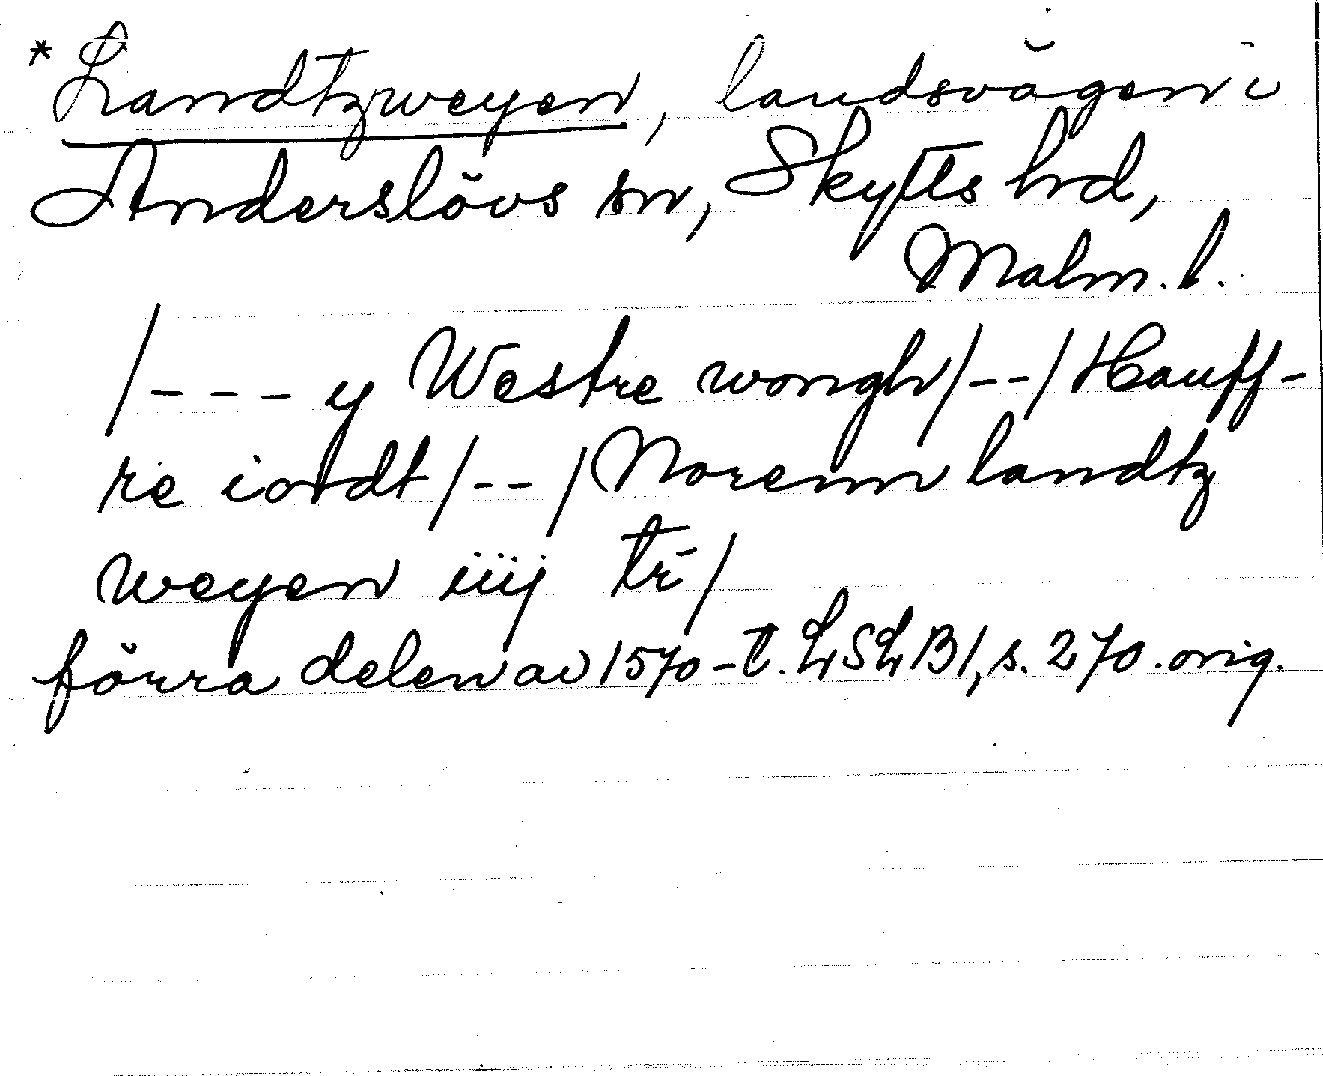 * Landtzweyen, landsvägen i
Anderslövs sn, Skytts hd,
Malm. l.
/---y Westre wongh/--/Hauff-
re iordt/--/Norenn landtz
weyen iiij tr/
förra delen av 1570-t. LSLB1, s. 270. orig.